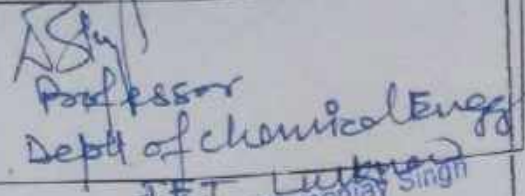 Professor
Deptt of Chemical Engg
IET Lucknow
Singh